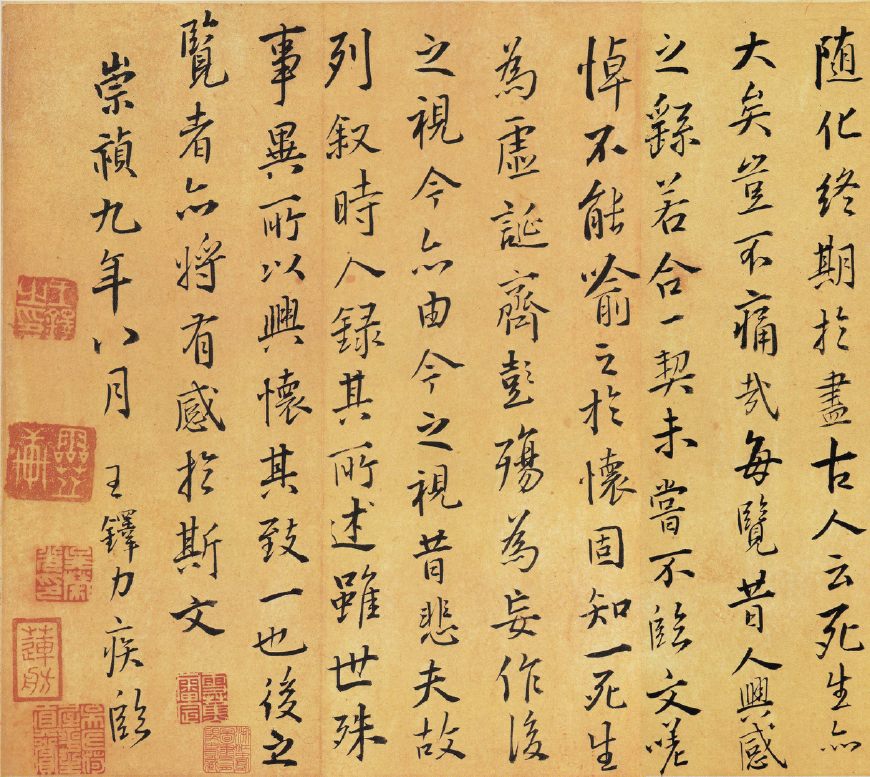 随化終期於盡古人云死生亦
大矣豈不痛哉每覽昔人興感
之繇若合一契未嘗不臨文嗟
悼不能喻之於懷固知一死生
為虛誕齊彭殤為妄作後
之視今亦由今之視昔悲夫故
列叙時人錄其所述雖世殊
事異所以興懷其致一也後之
覽者亦將有感於斯文
崇禎九年八月 王鐸力疾臨
蓮舫